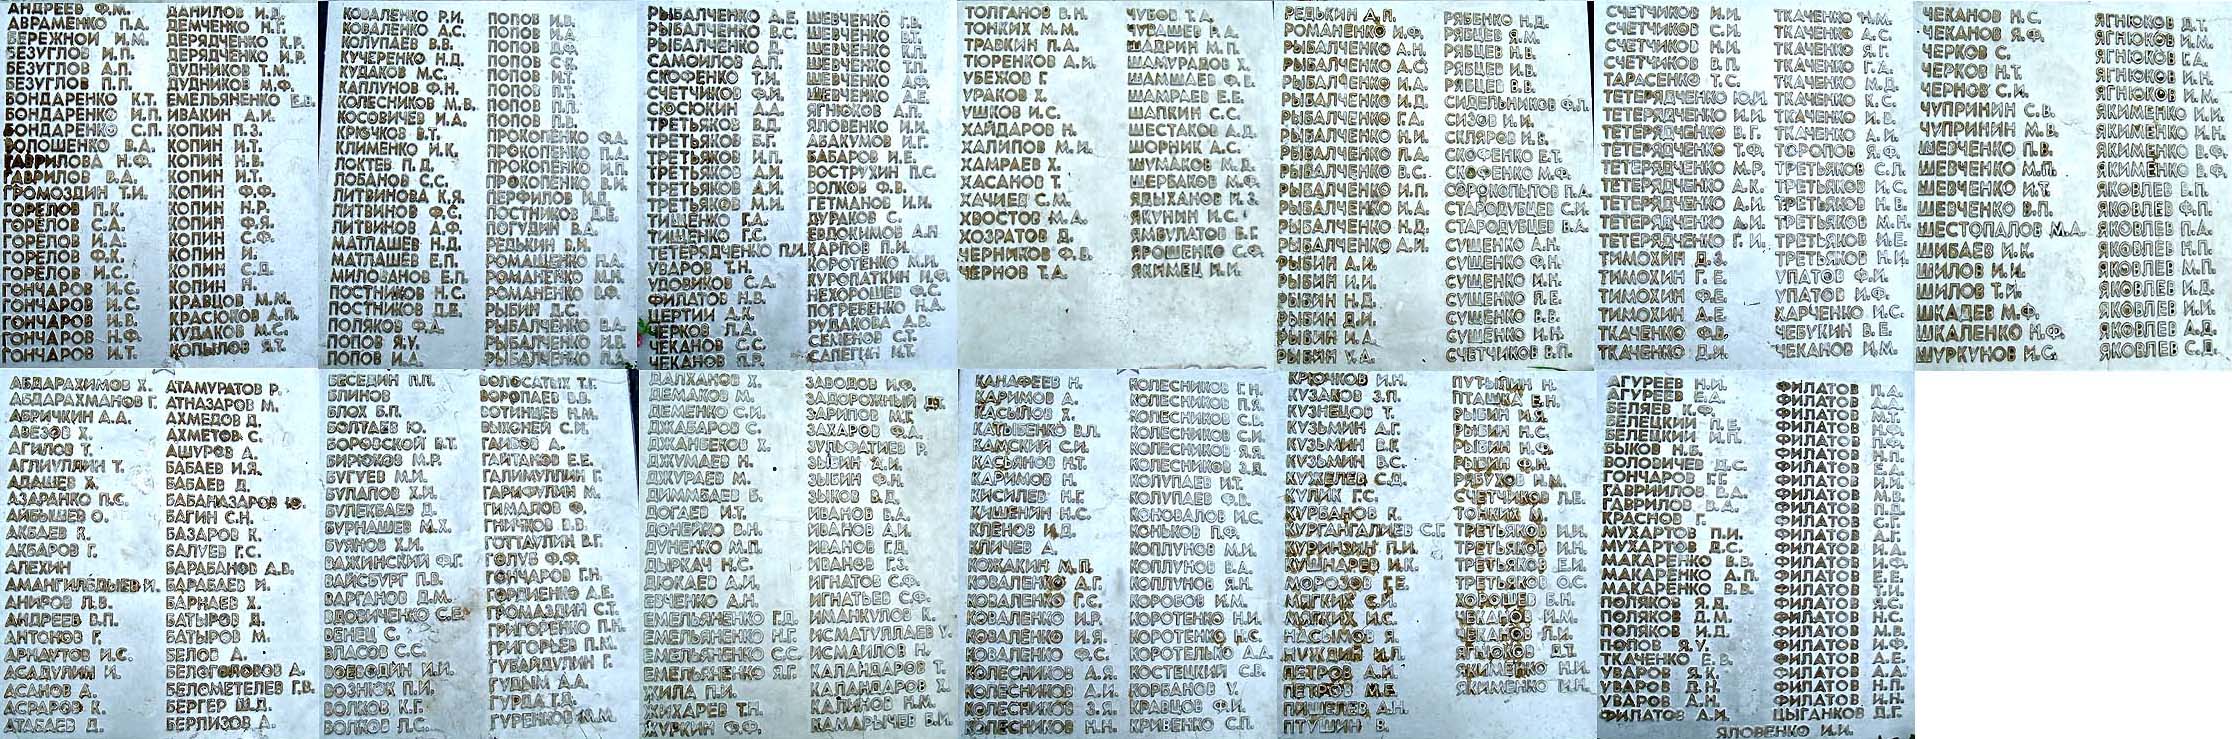 АНДРЕЕВ Ф.М.
АВРАМЕНКО П.А.
БЕРЕЖНОЙ И.М.
БЕЗУГЛОВ И.П.
БЕЗУГЛОВ А.П.
БЕЗУГЛОВ П.П.
БОНДАРЕНКО К.Т.
БОНДАРЕНКО И.П.
БОНДАРЕНКО С.П.
ВОЛОШЕНКО В.А.
ГАВРИЛОВА Н.Ф.
ГАВРИЛОВ В.А.
ГРОМОЗДИН Т.И.
ГОРЕЛОВ П.К.
ГОРЕЛОВ С.А.
ГОРЕЛОВ И.А.
ГОРЕЛОВ Ф.К.
ГОРЕЛОВ И.С.
ГОНЧАРОВ И.С.
ГОНЧАРОВ И.С.
ГОНЧАРОВ И.В.
ГОНЧАРОВ Н.Ф.
ГОНЧАРОВ И.Т.
ДАНИЛОВ И.Д.
ДЕМЧЕНКО Н.Г.
ДЕРЯДЧЕНКО К.Р.
ДЕРЯДЧЕНКО И.Р.
ДУДНИКОВ Т.М.
ДУДНИКОВ М.Ф.
ЕМЕЛЬЯНЕНКО Е.В.
ИВАКИН А.И.
КОПИН П.З.
КОПИН И.Т.
КОПИН Н.В.
КОПИН И.Т.
КОПИН Ф.Ф.
КОПИН Н.Р.
КОПИН Ф.Я.
КОПИН С.Ф.
КОПИН И.
КОПИН С.Д.
КОПИН Н.
КРАВЦОВ М.М.
КРАСЮКОВ А.П.
КУДАКОВ М.С.
КОПЫЛОВ Я.Т.
КОВАЛЕНКО Р.И.
КОВАЛЕНКО Д.С.
КОЛУПАЕВ В.В.
КУЧЕРЕНКО Н.Д.
КУДАКОВ М.С.
КАПЛУНОВ Ф.Н.
КОЛЕСНИКОВ М.В.
КОСОВИЧЕВ И.А.
КРЮЧКОВ В.Т.
КЛИМЕНКО И.К.
ЛОКТЕВ П.Д.
ЛОБАНОВ С.С.
ЛИТВИНОВА К.Я.
ЛИТВИНОВ Ф.С.
ЛИТВИНОВ А.Ф.
МАТЛАШЕВ Н.Д.
МАТЛАШЕВ Е.П.
МИЛОВАНОВ Е.П.
ПОСТНИКОВ Н.С.
ПОСТНИКОВ Д.Е.
ПОЛЯКОВ Ф.А.
ПОПОВ Я.У.
ПОПОВ И.А.
ПОПОВ И.В.
ПОПОВ И.А.
ПОПОВ Д.Ф.
ПОПОВ С.К.
ПОПОВ И.Т.
ПОПОВ П.Т.
ПОПОВ П.П.
ПОПОВ П.В.
ПРОКОПЕНКО Ф.А.
ПРОКОПЕНКО П.А.
ПРОКОПЕНКО И.П.
ПРОКОПЕНКО В.И.
ПЕРФИЛОВ И.Д.
ПОСТНИКОВ Д.Е.
ПОГУДИН В.А.
РЕДЬКИН В.И.
РОМАЩЕНКО Н.А.
РОМАНЕНКО М.Н.
РОМАНЕНКО В.Ф.
РЫБИН Д.С.
РЫБАЛЧЕНКО В.А.
РЫБАЛЧЕНКО И.В.
РЫБАЛЧЕНКО П.А.
РЫБАЛЧЕНКО А.Е.
РЫБАЛЧЕНКО В.С.
РЫБАЛЧЕНКО Д.
САМОИЛОВ А.П.
СКОФЕНКО Т.И.
СЧЕТЧИКОВ Ф.И.
СЮСЮКИН А.А.
ТРЕТЬЯКОВ В.Д.
ТРЕТЬЯКОВ В.Г.
ТРЕТЬЯКОВ И.П.
ТРЕТЬЯКОВ А.И.
ТРЕТЬЯКОВ А.И.
ТРЕТЬЯКОВ М.И.
ТИЩЕНКО Г.А.
ТИЩЕНКО Г.С.
ТЕТЕРЯДЧЕНКО П.И.
УВАРОВ Т.Н.
УДОВИКОВ С.А.
ФИЛАТОВ Н.В.
ЦЕРТИЙ А.К.
ЧЕРКОВ Л.А.
ЧЕКАНОВ С.С.
ЧЕКАНОВ П.Р.
ШЕВЧЕНКО Г.В.
ШЕВЧЕНКО В.Т.
ШЕВЧЕНКО К.П.
ШЕВЧЕНКО Т.П.
ШЕВЧЕНКО А.Ф.
ШЕВЧЕНКО А.Е.
ЯГНЮКОВ А.П.
ЯЛОВЕНКО И.И.
АБАКУМОВ И.Г.
БАБАРОВ И.Е.
ВОСТРУХИН П.С.
ВОЛКОВ Ф.В.
ГЕТМАНОВ И.И.
ДУРАКОВ С.
ЕВДОКИМОВ А.Н.
КАРПОВ П.И.
КОРОТЕНКО М.И.
КУРОПАТКИН И.Ф.
НЕХОРОШЕВ Ф.С.
ПОГРЕБЕНКО Н.А.
РУДАКОВА А.В.
СЕМЕНОВ С.Т.
САПЕГИН И.Т.
ТОЛГАНОВ В.Н.
ТОНКИХ М.М.
ТРАВКИН П.А.
ТЮРЕНКОВ А.И.
УБЕЖОВ Г.
УРАКОВ Х.
УШКОВ И.С.
ХАЙДАРОВ Н.
ХАЛИПОВ М.И.
ХАМРАЕВ Х.
ХАСАНОВ Т.
ХАЧИЕВ С.М.
ХВОСТОВ М.А.
ХОЗРАТОВ Д.
ЧЕРНИКОВ Ф.В.
ЧЕРНОВ Т.А.
ЧУБОВ Т.А.
ЧУВАШЕВ Р.А.
ШАДРИН М.П.
ШАМУРАДОВ Х.
ШАМШАЕВ Ф.В.
ШАМРАЕВ Е.Е.
ШАПКИН С.С.
ШЕСТАКОВ А.Д.
ШОРНИК А.С.
ШУМАКОВ М.Д.
ЩЕРБАКОВ М.Ф.
ЯДЫХАНОВ И.З.
ЯКУНИН И.С.
ЯМБУЛАТОВ В.Г.
ЯРОШЕНКО С.Ф.
ЯКИМЕЦ И.И.
РЕДЬКИН А.П.
РОМАНЕНКО И.Ф.
РЫБАЛЧЕНКО А.Н.
РЫБАЛЧЕНКО А.С.
РЫБАЛЧЕНКО И.А.
РЫБАЛЧЕНКО И.Д.
РЫБАЛЧЕНКО Г.А.
РЫБАЛЧЕНКО Н.И.
РЫБАЛЧЕНКО П.А.
РЫБАЛЧЕНКО В.С.
РЫБАЛЧЕНКО И.П.
РЫБАЛЧЕНКО И.А.
РЫБАЛЧЕНКО Н.Д.
РЫБАЛЧЕНКО А.И.
РЫБИН А.И.
РЫБИН И.И.
РЫБИН Н.Д.
РЫБИН Д.И.
РЫБИН И.А.
РЫБИН У.А.
РЯБЕНКО Н.Д.
РЯБЦЕВ Я.М.
РЯБЦЕВ Н.В.
РЯБЦЕВ И.В.
РЯБЦЕВ В.В.
СИДЕЛЬНИКОВ Ф.Л.
СИЗОВ И.И.
СКЛЯРОВ И.В.
СКОФЕНКО Е.Т.
СКОФЕНКО М.Ф.
СОРОКОПЫТОВ П.А.
СТАРОДУБЦЕВ С.И.
СТАРОДУБЦЕВ В.А.
СУЩЕНКО А.Н.
СУЩЕНКО Ф.Н.
СУЩЕНКО И.П.
СУЩЕНКО П.Е.
СУЩЕНКО В.В.
СУЩЕНКО И.Н.
СЧЕТЧИКОВ В.П.
СЧЕТЧИКОВ И.И.
СЧЕТЧИКОВ С.И.
СЧЕТЧИКОВ Н.И.
СЧЕТЧИКОВ В.П.
ТАРАСЕНКО Т.С.
ТЕТЕРЯДЧЕНКО Ю.И.
ТЕТЕРЯДЧЕНКО И.И.
ТЕТЕРЯДЧЕНКО В.Г.
ТЕТЕРЯДЧЕНКО Т.Ф.
ТЕТЕРЯДЧЕНКО М.Р.
ТЕТЕРЯДЧЕНКО А.К.
ТЕТЕРЯДЧЕНКО А.И.
ТЕТЕРЯДЧЕНКО А.И.
ТЕТЕРЯДЧЕНКО Г.И.
ТИМОХИН Д.З.
ТИМОХИН Г.Е.
ТИМОХИН Ф.Е.
ТИМОХИН А.Е.
ТКАЧЕНКО Ф.В.
ТКАЧЕНКО Д.И.
ТКАЧЕНКО Н.М.
ТКАЧЕНКО А.С.
ТКАЧЕНКО Я.Г.
ТКАЧЕНКО Г.А.
ТКАЧЕНКО М.Д.
ТКАЧЕНКО К.С.
ТКАЧЕНКО И.
ТКАЧЕНКО А.И.
ТОРОПОВ Я.Ф.
ТРЕТЬЯКОВ С.П.
ТРЕТЬЯКОВ И.С.
ТРЕТЬЯКОВ Н.В.
ТРЕТЬЯКОВ М.Н.
ТРЕТЬЯКОВ И.Е.
ТРЕТЬЯКОВ Н.И.
УПАТОВ Ф.И.
УПАТОВ И.Ф.
ХАРЧЕНКО И.С.
ЧЕБУКИН В.Е.
ЧЕКАНОВ И.М.
ЧЕКАНОВ Н.С.
ЧЕКАНОВ Я.Ф.
ЧЕРКОВ С.
ЧЕРКОВ Н.Т.
ЧЕРНОВ С.И.
ЧУПРИНИН С.В.
ЧУПРИНИН М.В.
ШЕВЧЕНКО П.В.
ШЕВЧЕНКО М.П.
ШЕВЧЕНКО И.Т.
ШЕВЧЕНКО В.П.
ШЕСТОПАЛОВ М.А.
ШИБАЕВ И.К.
ШИЛОВ И.И.
ШИЛОВ Т.И.
ШКАДЕВ М.Ф.
ШКАЛЕНКО Н.Ф.
ШУРКУНОВ И.С.
ЯГНЮКОВ Д.Т.
ЯГНЮКОВ И.М.
ЯГНЮКОВ Г.А.
ЯГНЮКОВ И.Н.
ЯГНЮКОВ И.М.
ЯКИМЕНКО И.И.
ЯКИМЕНКО И.Н.
ЯКИМЕНКО В.Ф.
ЯКИМЕНКО В.Ф.
ЯКОВЛЕВ В.П.
ЯКОВЛЕВ Ф.П.
ЯКОВЛЕВ П.А.
ЯКОВЛЕВ Н.П.
ЯКОВЛЕВ М.П.
ЯКОВЛЕВ И.Д.
ЯКОВЛЕВ И.И.
ЯКОВЛЕВ А.Д.
ЯКОВЛЕВ С.Д.
АБДАРАХИМОВ Х.
АБДАРАХМАНОВ Г.
АБРИЧКИН А.А.
АВЕЗОВ Х.
АГИЛОВ Т.
АГЛИУЛЛИН Т.
АДАШЕВ Х.
АЗАРАНКО П.С.
АЙБЫШЕВ О.
АКБАЕВ К.
АКБАРОВ Г.
АЛЕХИН
АМАНГИЛЬДЫЕВ И.
АНИРОВ Л.В.
АНДРЕЕВ В.П.
АНТОНОВ Г.
АРНАУТОВ И.С.
АСАДУЛИН И.
АСАНОВ А.
АСРАРОВ К.
АТАБАЕВ Д.
АТАМУРАТОВ Р.
АТНАЗАРОВ М.
АХМЕДОВ Д.
АХМЕТОВ С.
АШУРОВ А.
БАБАЕВ И.Я.
БАБАЕВ Д.
БАБАНАЗАРОВ Ю.
БАГИН С.Н.
БАЗАРОВ К.
БАЛУЕВ Г.С.
БАРАБАНОВ А.В.
БАРАБАЕВ И.
БАРНАЕВ Х.
БАТЫРОВ Д.
БАТЫРОВ М.
БЕЛОВ А.
БЕЛОГОЛОВОВ А.
БЕЛОМЕТЕЛЕВ Г.В.
БЕРГЕР Ш.Д.
БЕРЛИЗОВ А.
БЕСЕДИН П.П.
БЛИНОВ
БЛОХ Б.П.
БОЛТАЕВ Ю.
БОРОВСКОЙ В.Т.
БИРЮКОВ М.Р.
БУГУЕВ М.И.
БУЛАПОВ Х.И.
БУЛЕКБАЕВ Д.
БУРНАШЕВ М.Х.
БУЯНОВ Х.И.
ВАЖИНСКИЙ Ф.Г.
ВАЙСБУРГ П.В.
ВАРГАНОВ Д.М.
ВДОВИЧЕНКО С.Е.
ВЕНЕЦ С.
ВЛАСОВ С.С.
ВОЕВОДИН И.И.
ВОЗНЮК П.И.
ВОЛКОВ К.Г.
ВОЛКОВ Л.С.
ВОЛОСАТЫХ Т.Г.
ВОРОПАЕВ В.В.
ВОТИНЦЕВ Н.М.
ВЫХОНЕЙ С.И.
ГАИВОВ А.
ГАЙТАНОВ Е.Е.
ГАЛИМУЛЛИН Г.
ГАРИФУЛИН М.
ГИМАДОВ Ф.
ГНИЧКОВ В.В.
ГОТТАУЛИН В.Г.
ГОЛУБ Ф.Ф.
ГОНЧАРОВ Г.Н.
ГОРДИЕНКО А.Е.
ГРОМАЗДИН С.Т.
ГРИГОРЕНКО П.Н.
ГРИГОРЬЕВ П.М.
ГУБАЙДУЛИН Г.
ГУДЫМ А.А.
ГУРДА Т.Д.
ГУРЕНКОВ М.М.
ДАЛХАНОВ Х.
ДЕМАКОВ М.
ДЕМЕНКО С.И.
ДЖАБАРОВ С.
ДЖАНБЕКОВ Х.
ДЖУМАЕВ Н.
ДЖУРАЕВ М.
ДИММБАЕВ Б.
ДОГАЕВ И.Т.
ДОНЕЙКО В.Н.
ДУНЕНКО М.П.
ДЫРКАЧ Н.С.
ДЮКАЕВ А.И.
ЕВЧЕНКО А.Н.
ЕМЕЛЬЯНЕНКО Г.Д.
ЕМЕЛЬЯНЕНКО Н.Г.
ЕМЕЛЬЯНЕНКО С.С.
ЕМЕЛЬЯНЕНКО Я.Г.
ЖИЛА П.И.
ЖИХАРЕВ Т.Н.
ЖУРКИН Ф.Ф.
ЗАВОДОВ И.Ф.
ЗАДОРОЖНЫЙ
ЗАРИПОВ М.Г.
ЗАХАРОВ Ф.А.
ЗУЛЬФАТИЕВ Р.
ЗЫБИН А.И.
ЗЫБИН Ф.Н.
ЗЫКОВ В.Д.
ИВАНОВ В.А.
ИВАНОВ А.И.
ИВАНОВ Г.Д.
ИВАНОВ Г.З.
ИГНАТОВ С.Ф.
ИГНАТЬЕВ С.Ф.
ИМАНКУЛОВ К.
ИСМАТУЛЛАЕВ У.
ИСМАИЛОВ Н.
КАЛАНДАРОВ Т.
КАЛАНДАРОВ Х.
КАЛИНОВ Н.М.
КАМАРЫЧЕВ В.И.
КАНАФЕЕВ Н.
КАРИМОВ А.
КАСЫЛОВ Х.
КАТЫБЕНКО В.Л.
КАМСКИЙ С.И.
КАСЬЯНОВ Н.Т.
КАРИМОВ Н.
КИСИЛЕВ Н.Г.
КИШЕНИН Н.С.
КЛЕНОВ И.Д.
КЛИЧЕВ А.
КОЖАКИН М.П.
КОВАЛЕНКО А.Г.
КОВАЛЕНКО Г.С.
КОВАЛЕНКО И.Р.
КОВАЛЕНКО И.Я.
КОВАЛЕНКО Ф.С.
КОЛЕСНИКОВ А.Я.
КОЛЕСНИКОВ А.И.
КОЛЕСНИКОВ З.Я.
КОЛЕСНИКОВ Н.Н.
КОЛЕСНИКОВ Г.Н.
КОЛЕСНИКОВ П.Я.
КОЛЕСНИКОВ С.В.
КОЛЕСНИКОВ С.И.
КОЛЕСНИКОВ Я.Я.
КОЛЕСНИКОВ З.Д.
КОЛУПАЕВ И.Т.
КОЛУПАЕВ Ф.В.
КОНОВАЛОВ И.С.
КОНЬКОВ П.Ф.
КОПЛУНОВ М.И.
КОПЛУНОВ В.А.
КОПЛУНОВ Я.Н.
КОРОБОВ И.М.
КОРОТЕНКО Н.И.
КОРОТЕНКО Н.С.
КОРОТЕЛЬКО А.А.
КОСТЕЦКИЙ С.В.
КОРБАНОВ У.
КРАВЦОВ Ф.И.
КРИВЕНКО С.П.
КРЮЧКОВ И.Н.
КУЗАКОВ З.П.
КУЗНЕЦОВ Т.
КУЗЬМИН А.Г.
КУЗЬМИН В.Г.
КУЗЬМИН В.С.
КУЖЕЛЕВ С.Д.
КУЛИК Г.С.
КУРБАНОВ К.
КУРГАНГАЛИЕВ С.Г.
КУРИНЗИН П.И.
КУШНАРЕВ И.К.
МОРОЗОВ Г.Е.
МЯГКИХ С.И.
МЯГКИХ И.С.
НАСЫМОВ Я.
НУЖДИН И.П.
ПЕТРОВ А.И.
ПЕТРОВ М.Е.
ПИШЕЛЕВ А.Н.
ПТУШИН В.
ПУТЫЛИН Н.
ПТАШКА Е.Н.
РЫБИН И.Я.
РЫБИН Н.С.
РЫБИН Н.Ф.
РЫБИН Ф.Н.
РЯБУХОВ Н.М.
СЧЕТЧИКОВ Л.Е.
ТОНКИХ М.
ТРЕТЬЯКОВ И.И.
ТРЕТЬЯКОВ И.Н.
ТРЕТЬЯКОВ Е.И.
ТРЕТЬЯКОВ О.С.
ХОРОШЕВ Б.Н.
ЧЕКАНОВ И.М.
ЧЕКАНОВ Л.И.
ЯГНЮКОВ Д.Т.
ЯКИМЕНКО Н.И.
ЯКИМЕНКО И.Н.
АГУРЕЕВ Н.И.
АГУРЕЕВ Е.А.
БЕЛЯЕВ К.Ф.
БЕЛЕЦКИЙ П.Е.
БЕЛЕЦКИЙ И.П.
БЫКОВ Н.Б.
ВОЛОВИЧЕВ Д.С.
ГОНЧАРОВ Г.Г.
ГАВРИИЛОВ В.А.
ГАВРИЛОВ В.А.
КРАСНОВ Г.
МУХАРТОВ П.И.
МУХАРТОВ Д.С.
МАКАРЕНКО В.В.
МАКАРЕНКО А.П.
МАКАРЕНКО В.В.
ПОЛЯКОВ Я.Д.
ПОЛЯКОВ Д.М.
ПОЛЯКОВ И.Д.
ПОПОВ Я.У.
ТКАЧЕНКО Е.В.
УВАРОВ Я.К.
УВАРОВ Д.Н.
УВАРОВ А.Н.
ФИЛАТОВ А.И.
ФИЛАТОВ П.А.
ФИЛАТОВ А.Т.
ФИЛАТОВ М.Т.
ФИЛАТОВ Н.Ф.
ФИЛАТОВ П.Ф.
ФИЛАТОВ Н.П.
ФИЛАТОВ Е.А.
ФИЛАТОВ И.И.
ФИЛАТОВ М.В.
ФИЛАТОВ П.Д.
ФИЛАТОВ С.Г.
ФИЛАТОВ А.Г.
ФИЛАТОВ И.А.
ФИЛАТОВ И.Ф.
ФИЛАТОВ Е.Е.
ФИЛАТОВ Т.И.
ФИЛАТОВ Я.С.
ФИЛАТОВ Н.С.
ФИЛАТОВ М.В.
ФИЛАТОВ И.Ф.
ФИЛАТОВ А.Е.
ФИЛАТОВ А.А.
ФИЛАТОВ Н.П.
ФИЛАТОВ И.Н.
ЦЫГАНКОВ Д.Г.
ЯЛОВЕНКО И.И.